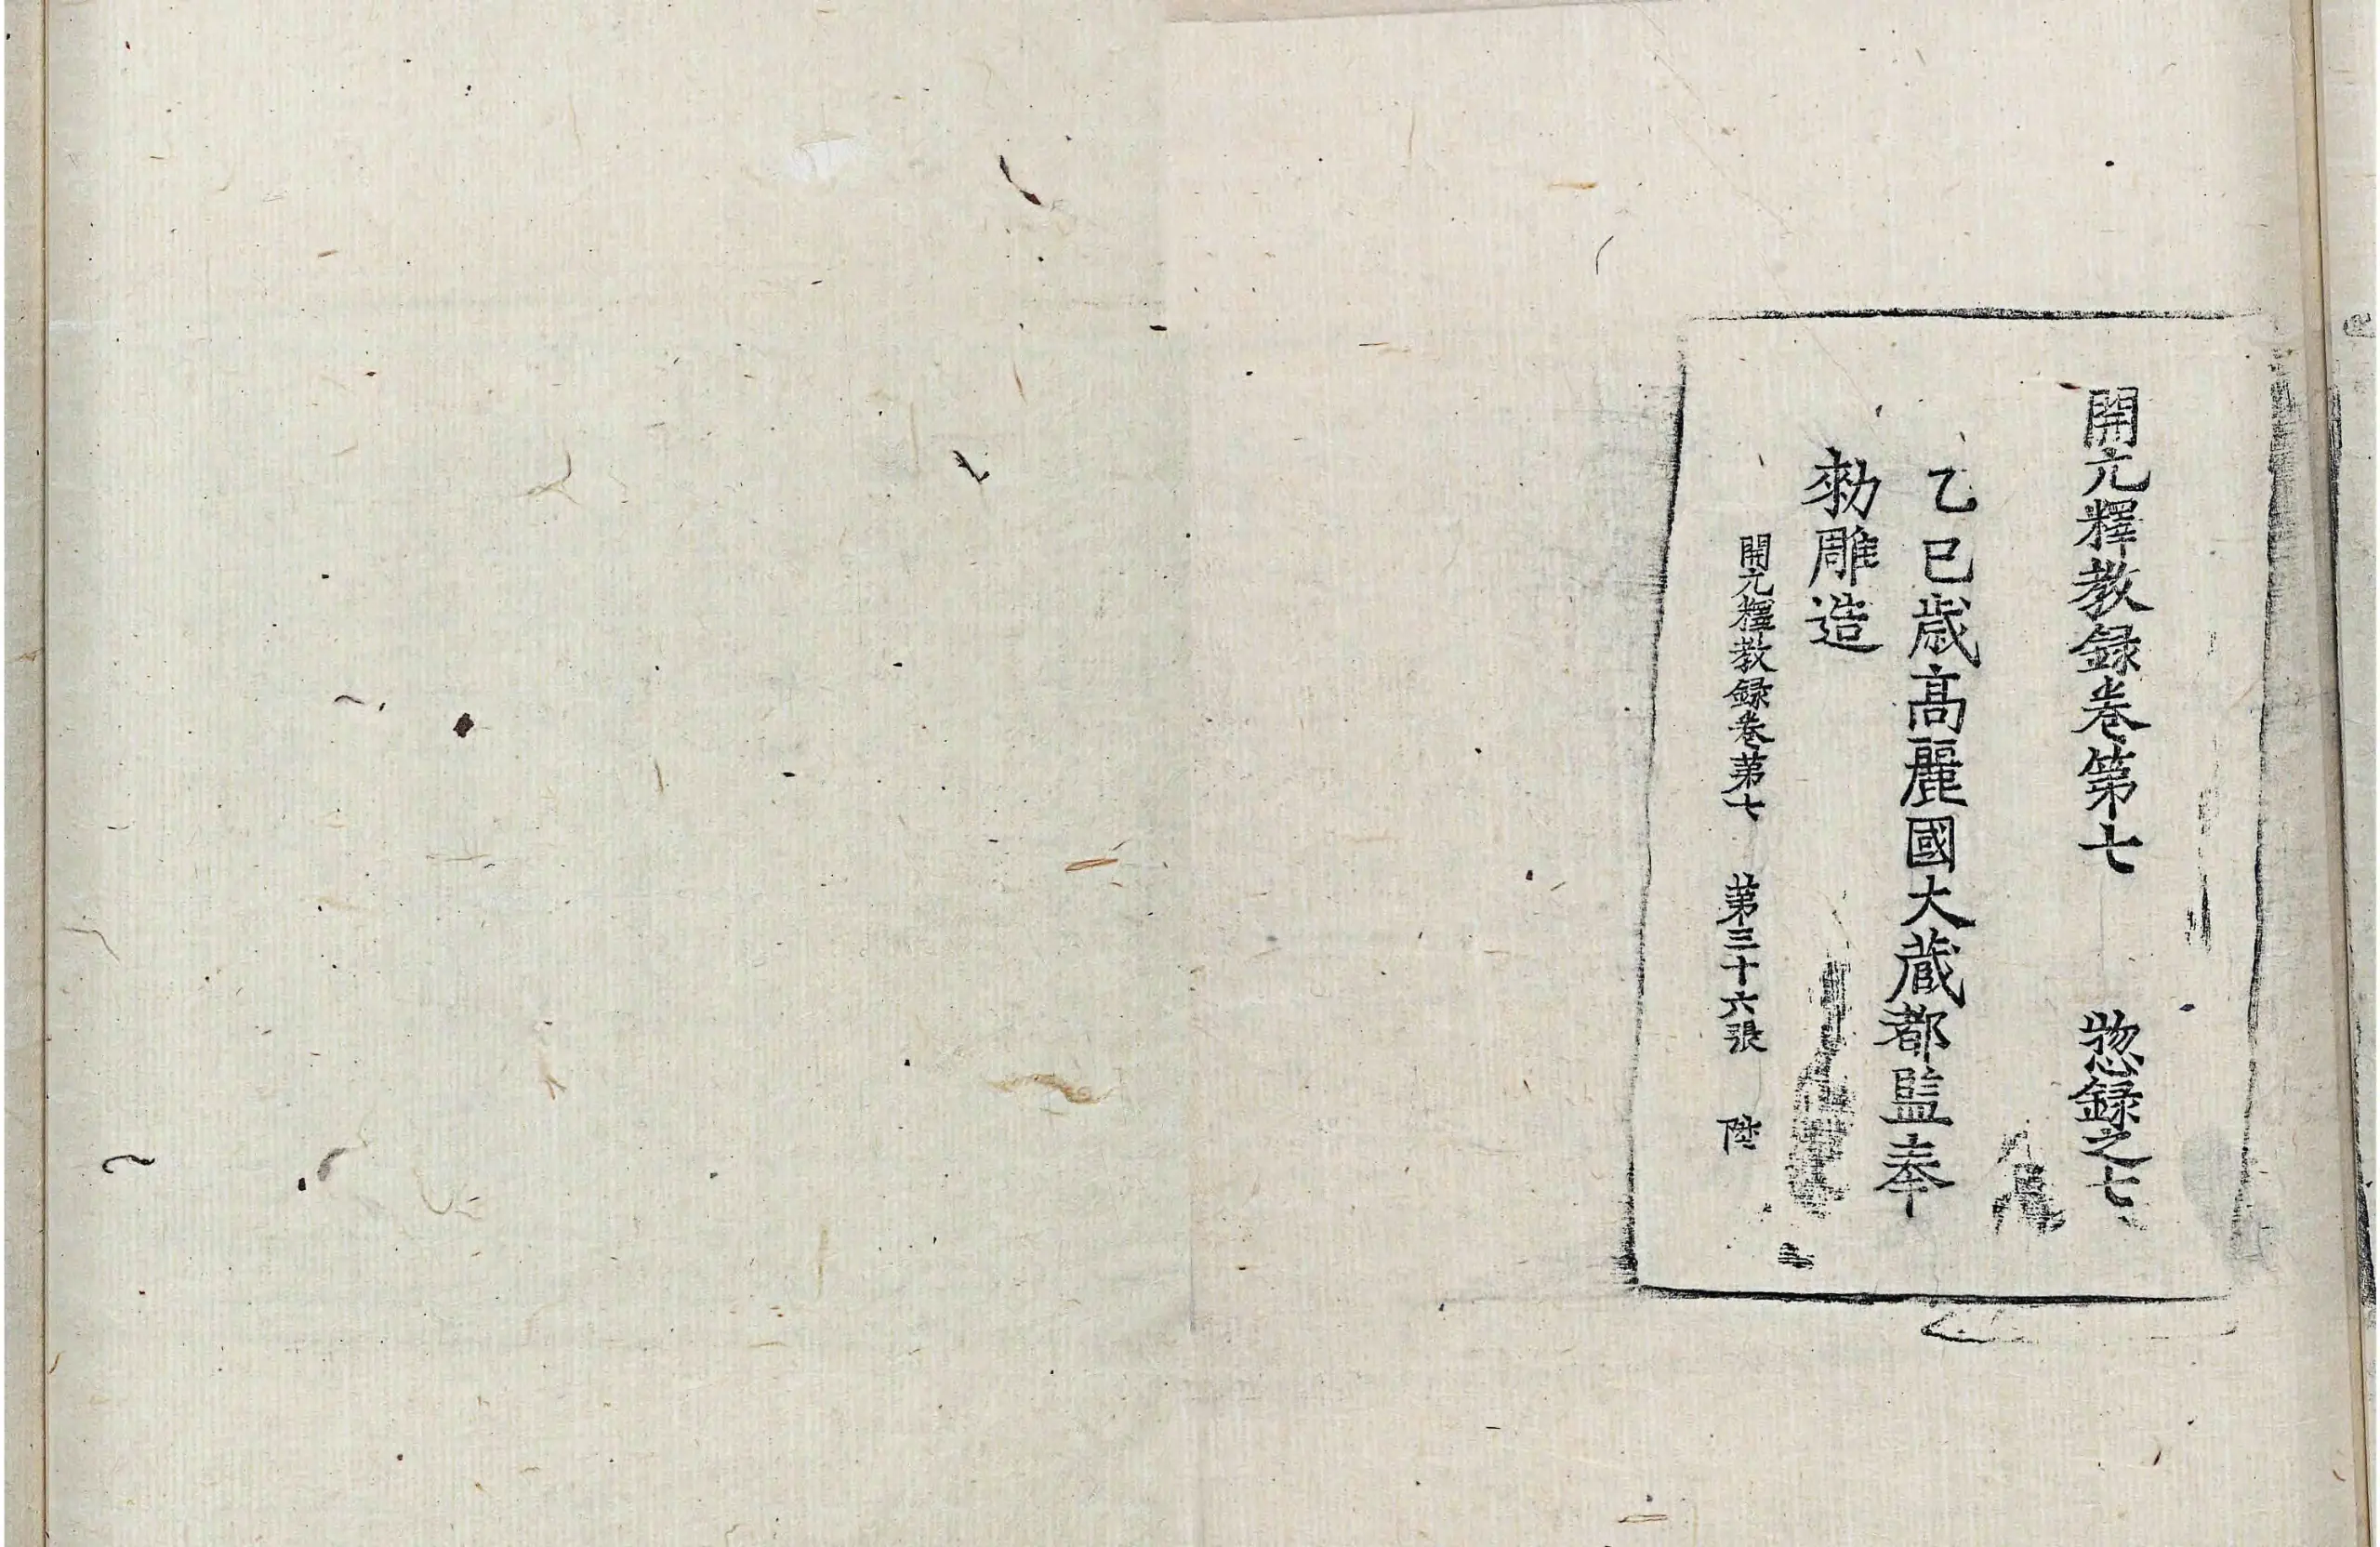 開元釋教録卷第七 惣録之七
乙巳歳高麗國大藏都監奉
勑雕造
開元釋教録卷第七 第三十六張 陞